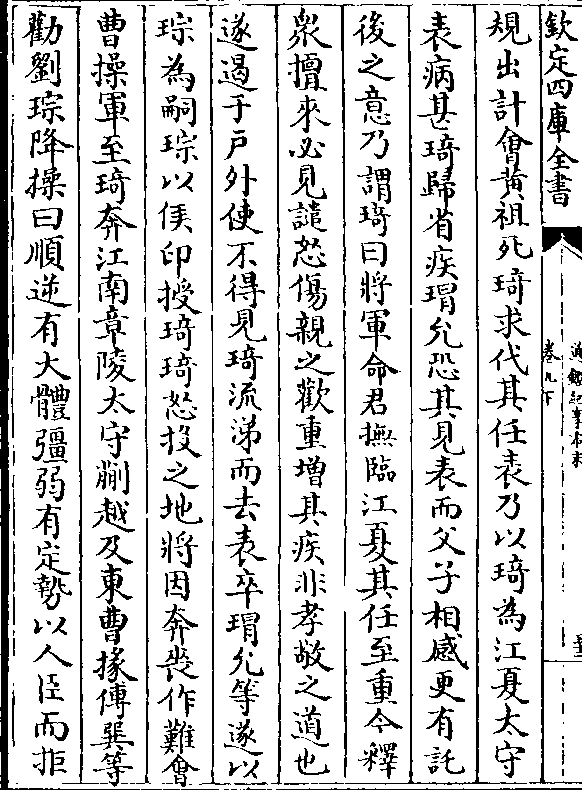 欽定四庫全書
卷九下
規出計會黃祖死琦求代其任表乃以琦為江夏太守
表病甚琦歸省疾瑁允恐其見表而父子相感更有託
後之意乃謂琦曰將軍命君撫臨江夏其任至重今釋
衆擅來必見譴怒傷親之歡重增其疾非孝敬之道也
遂遏于戶外使不得見琦流涕而去表卒瑁允等遂以
琮為嗣琮以侯印授琦琦怒投之地將因奔喪作難會
曹操軍至琦奔江南章陵太守蒯越及東曹掾傅巽等
勸劉琮降操曰順逆有大體彊弱有定勢以人臣而拒